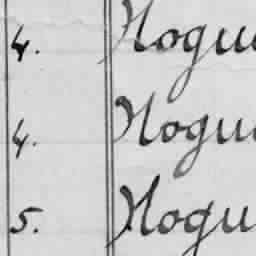 4. Nogu
4. Nogu
5. Nogu